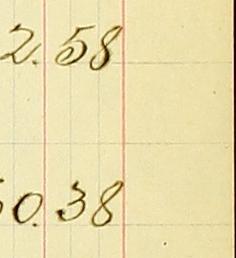 2.58
50.38